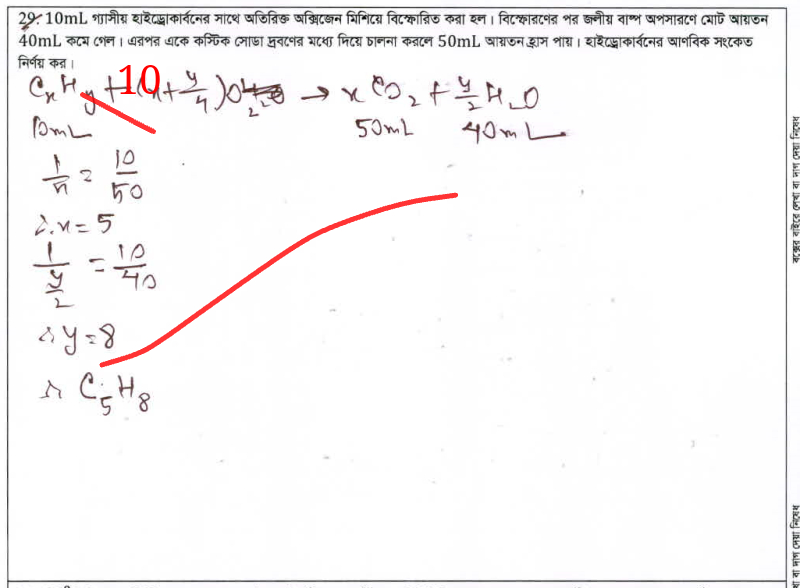 29. 10mL গ্যাসীয় হাইড্রোকার্বনের সাথে অতিরিক্ত অক্সিজেন মিশিয়ে বিস্ফোরিত করা হল। বিস্ফোরণের পর জলীয় বাষ্প অপসারণে মোট আয়তন
40mL কমে গেল। এরপর একে কস্টিক সোডা দ্রবণের মধ্যে দিয়ে চালনা করলে 50mL আয়তন হ্রাস পায়। হাইড্রোকার্বনের আণবিক সংকেত
নির্ণয় কর।
10
CxHy + (x + y/4) O2 → x CO2 + y/2 H2O
10mL 50mL 40mL
1/x = 10/50
∴ x = 5
1/(y/2) = 10/40
∴ y = 8
∴ C5H8
বক্সের বাইরে লেখা বা দাগ দেয়া নিষেধ
বা দাগ দেয়া নিষেধ